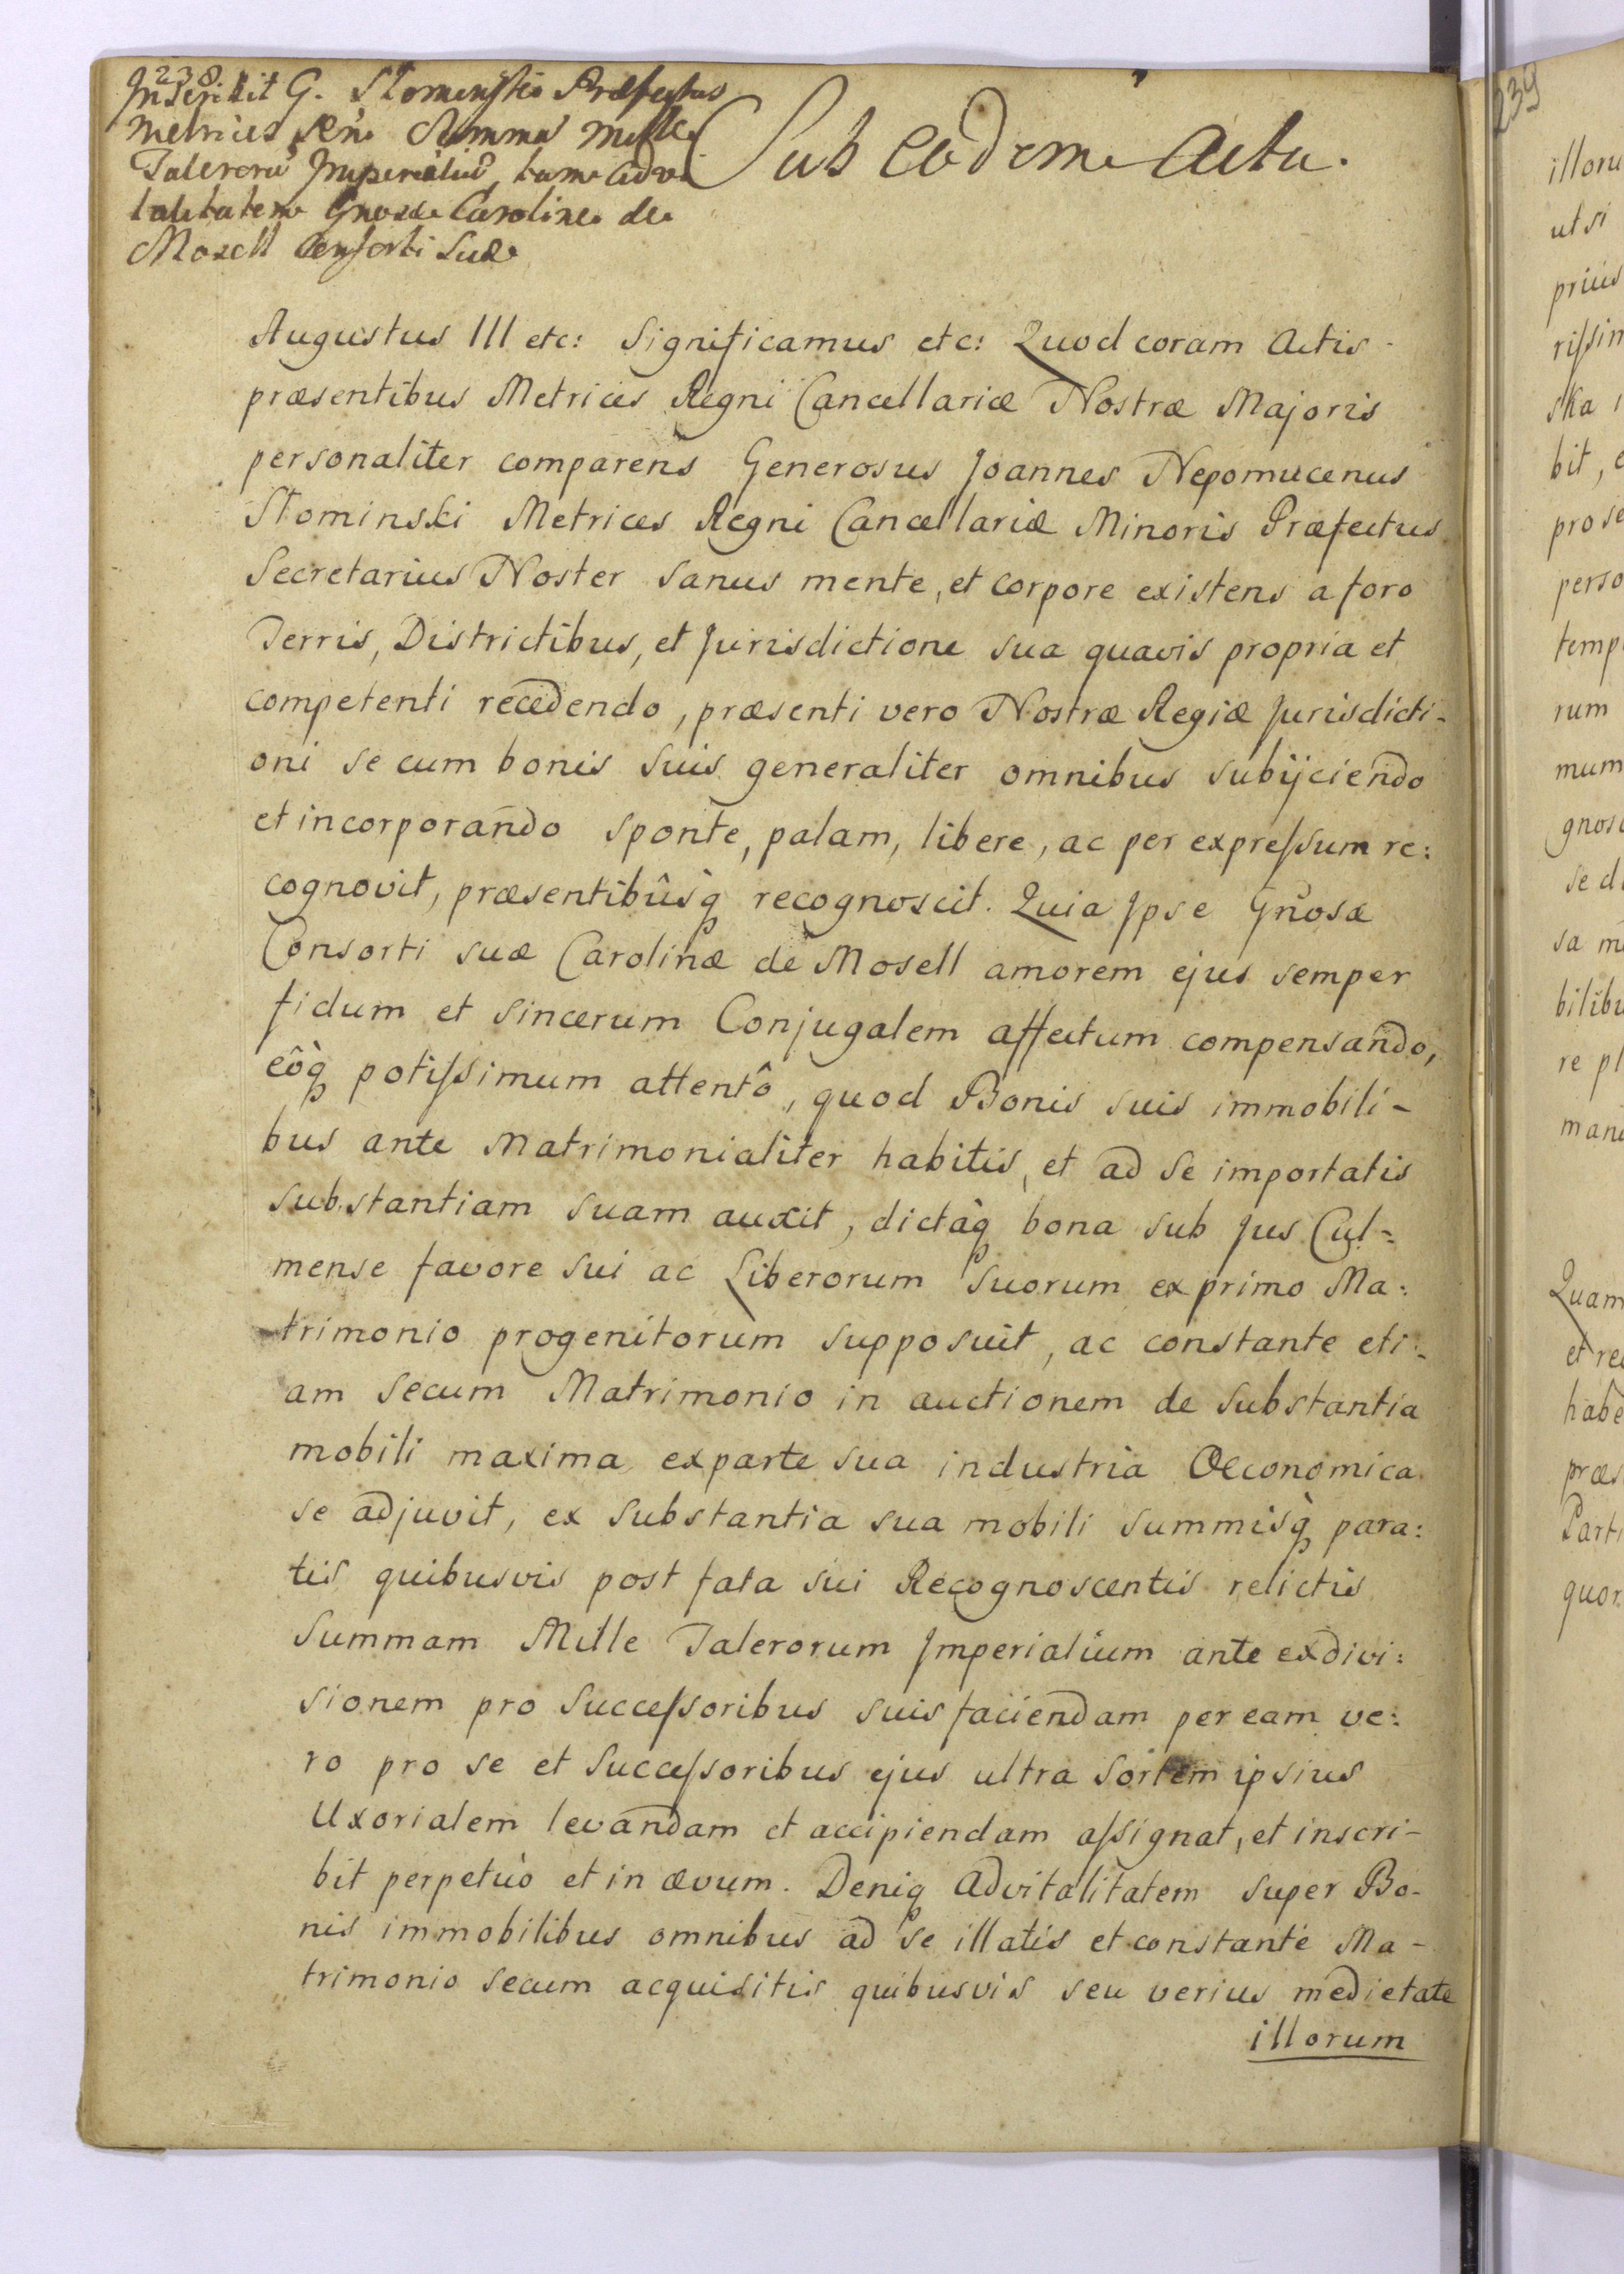 238
Inscribit G. Słominski Præfectus
Metrices Regni Summã Mille
Talerorũ Imperialiũ, tum Advi
talitatem Gnosæ Carolinæ de
Mosell Consorti Suæ
Sub Eodem Actu.
Augustus III etc: Significamus etc: Quod coram Actis
præsentibus Metrices Regni Cancellariæ Nostræ Majoris
personaliter comparens Generosus Joannes Nepomucenus
Słominski Metrices Regni Cancellariæ Minoris Præfectus
Secretarius Noster sanus mente, et corpore existens a foro
Terris, Districtibus, et Jurisdictione sua quavis propria et
competenti recedendo, præsenti vero Nostræ Regiæ Jurisdicti-
oni se cum bonis suis generaliter omnibus subijciendo
et incorporando sponte, palam, libere, ac per expressum re:
cognovit, præsentibûsq̀ recognoscit. Quia Ipse Gnosæ
Consorti suæ Carolinæ de Mosell amorem ejus semper
fidum et sincerum Conjugalem affectum compensando,
eôq̀ potissimum attentô, quod Bonis suis immobili-
bus ante Matrimonialiter habitis, et ad se importatis
substantiam suam auxit, dictàq bona sub Jus Cul=
mense favore sui ac Liberorum Suorum ex primo Ma:
trimonio progenitorum supposuit, ac constante eti:
am secum Matrimonio in auctionem de substantia
mobili maxima ex parte sua industria Oeconomica
se adjuvit, ex substantia sua mobili summisq̀ para:
tis quibusvis post fata sui Recognoscentis relictis
Summam Mille Talerorum Imperialium ante exdivi:
sionem pro Successoribus suis faciendam per eam ve:
ro pro se et Successoribus ejus ultra Sortem ipsius
Uxorialem levandam et accipiendam assignat, et inscri-
bit perpetuò et in ævum. Deniq Advitalitatem super Bo-
nis immobilibus omnibus ad se illatis et constante Ma-
trimonio secum acquisitis quibusvis seu verius medietate
illorum
239
illoru
utsi
prius
rissim
ska i
bit, e
pro se
perso
temp
rum
mum
gnos
se d
sa m
bilibu
re pl
man
Quam
et re
habe
præs
Parti
quor